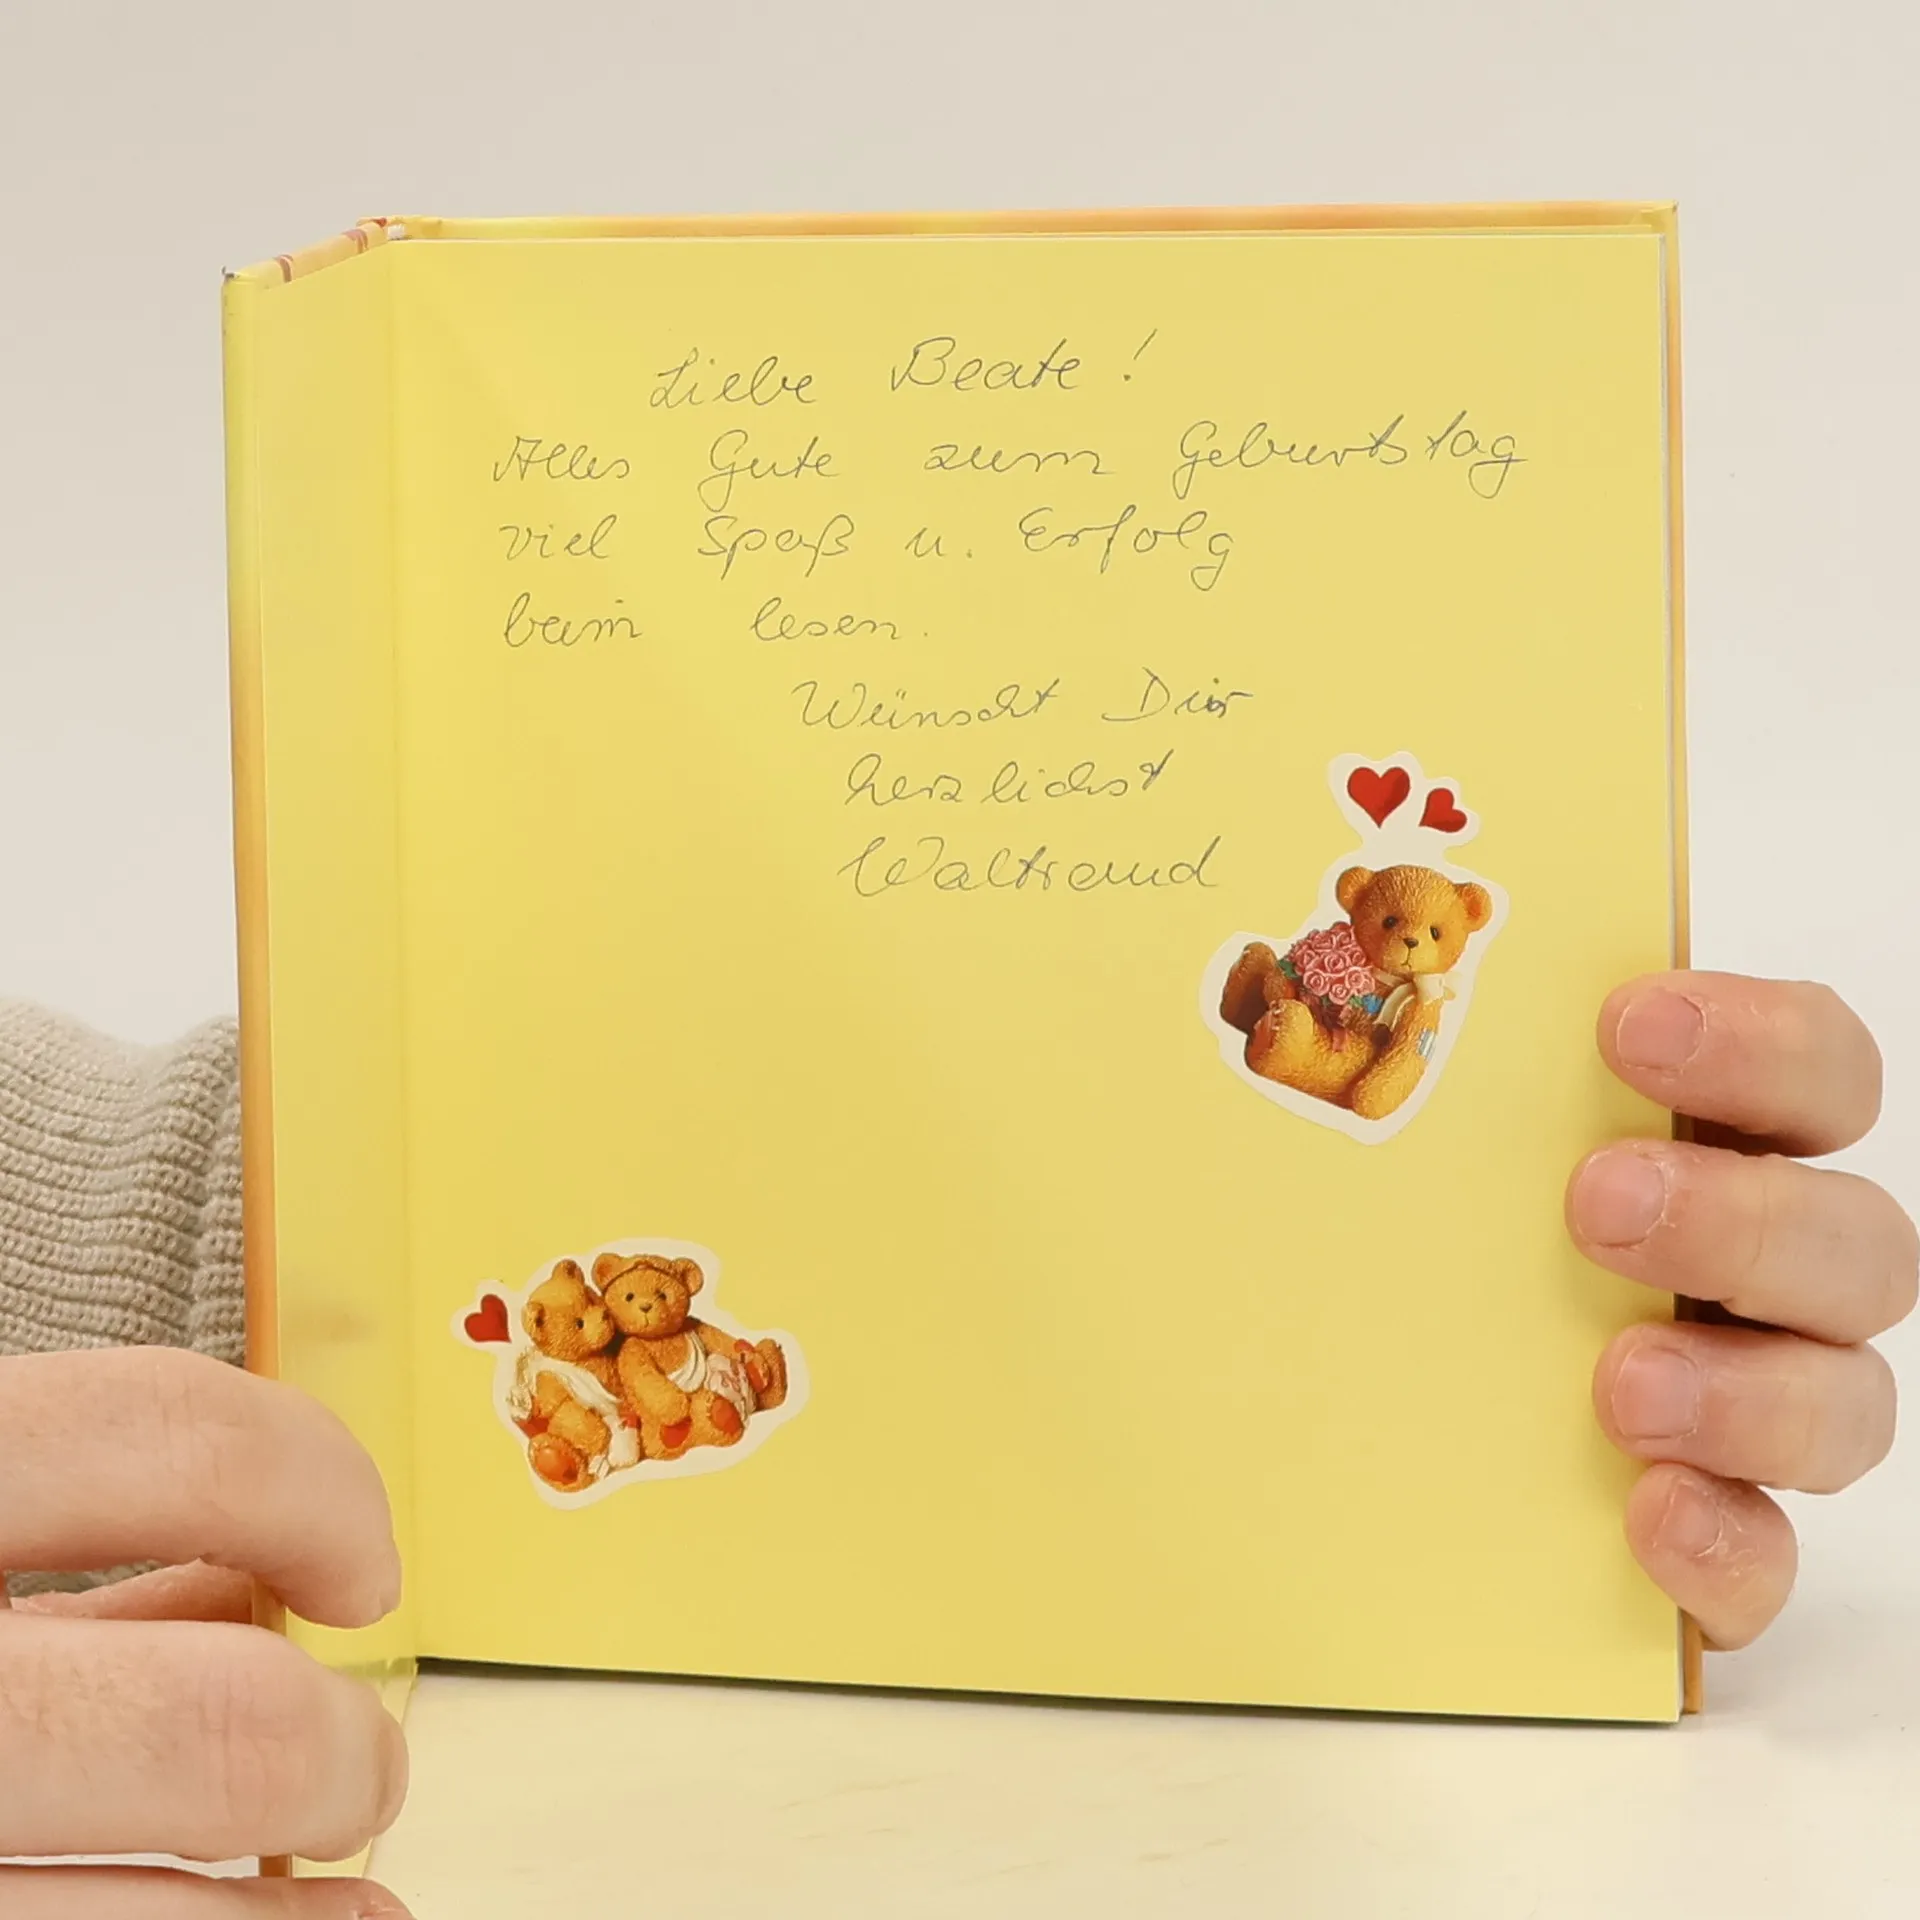 Liebe Beate!
Alles Gute zum Geburtstag
viel Spaß u. Erfolg
beim lesen.
Wünscht Dir
herzlichst
Waltraud